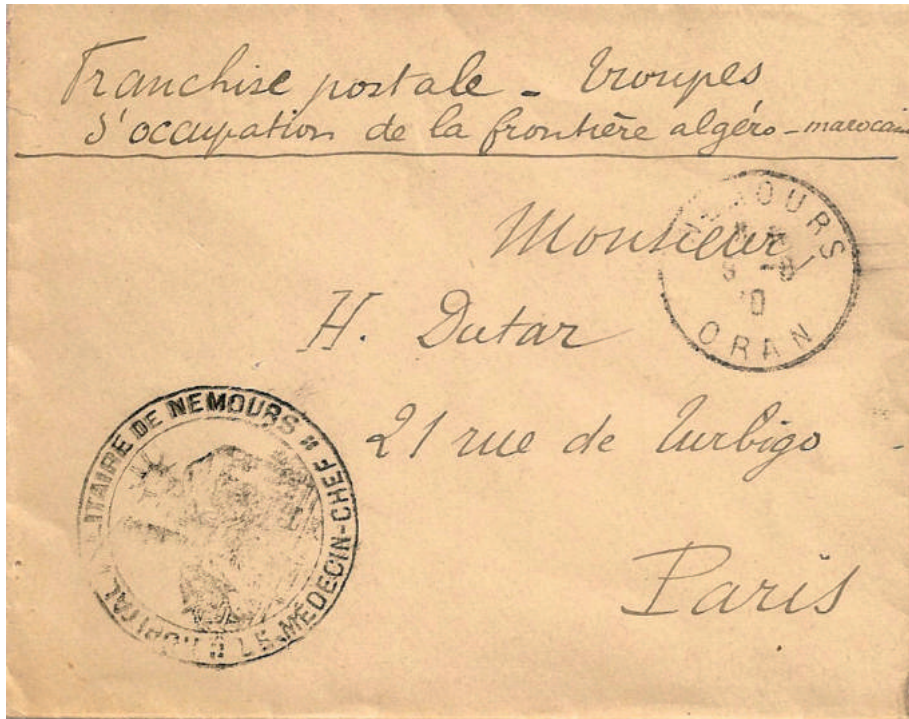 Franchise postale - Troupes
d'occupation de la frontière algéro-marocain
Monsieur
H. Dutar
21 rue de Turbigo -
Paris
NEMOURS
ORAN
HOPITAL MILITAIRE DE NEMOURS " LE MÉDECIN-CHEF